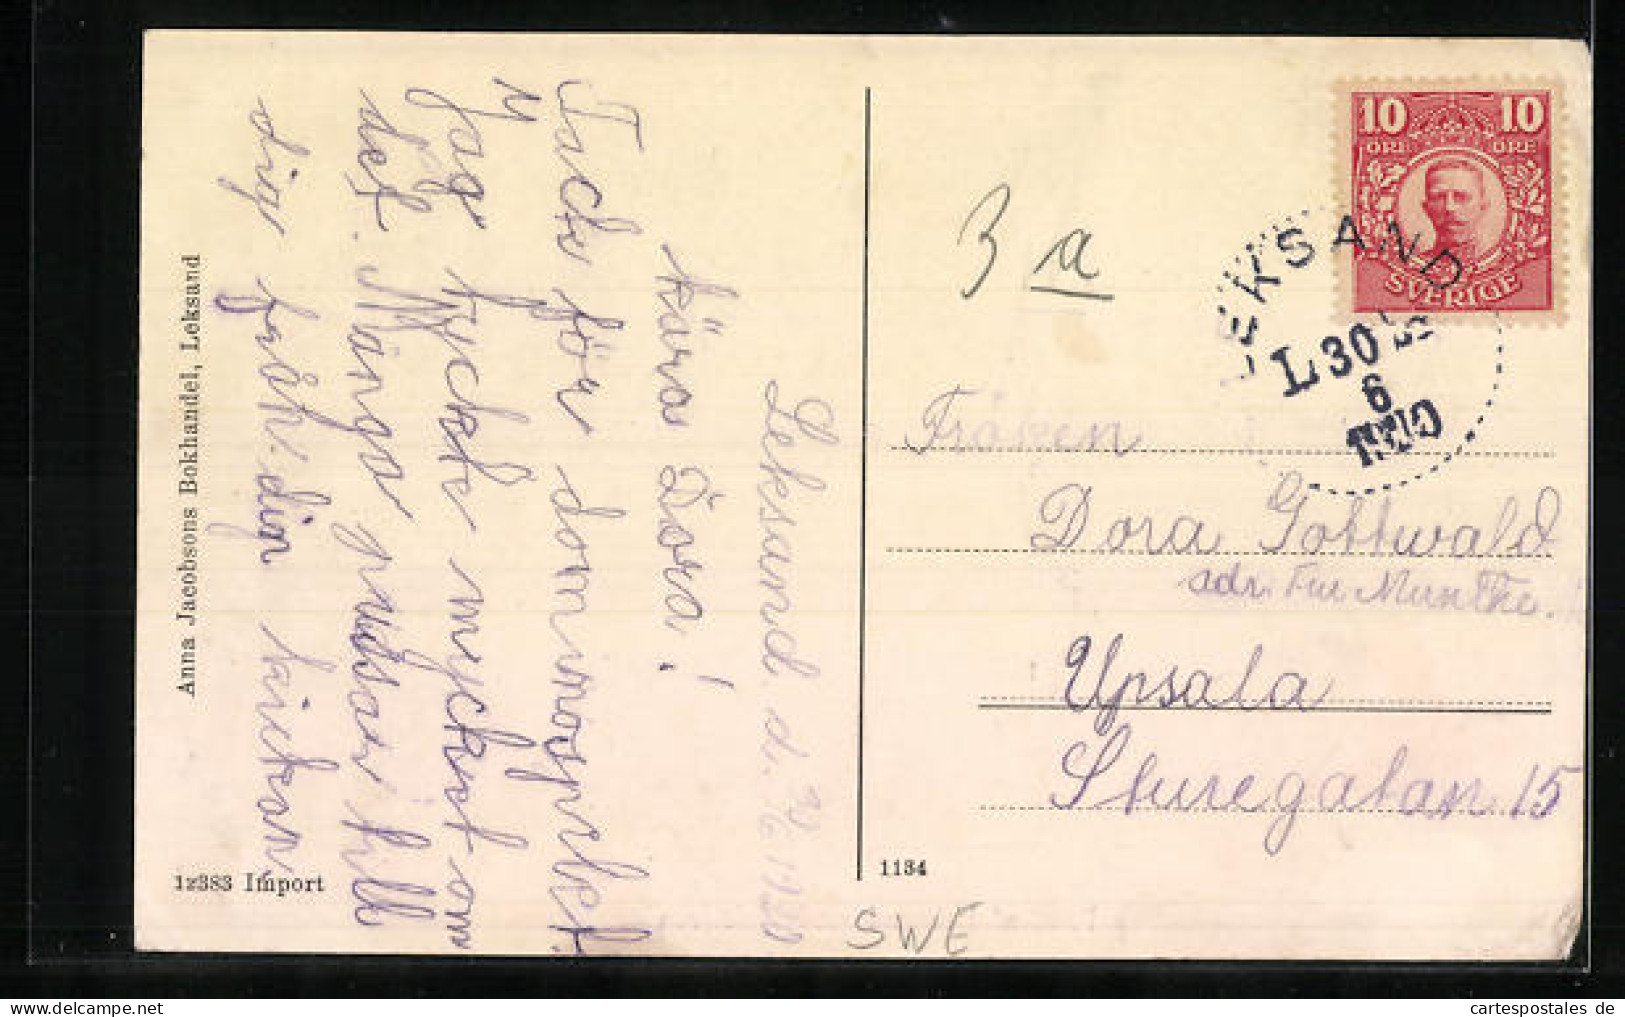 Leksand. d. 30/6 1920
Kära Dora!
Tack för dominospelet.
Jag tyckte mycket om
det. Många pussar till
dig från din
Anna Jacobsons Bokhandel, Leksand
12383 Import
1134
3 a
10 10
ÖRE ÖRE
SVERIGE
LEKSAND
L 30
6
Fröken
Dora Gottwald
adr. Fru Munthe.
Upsala
Sturegatan 15
SWE
cartespostales de